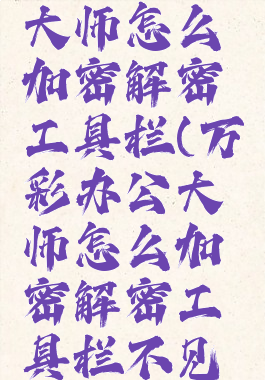 大师怎么
加密解密
工具栏(万
彩办公大
师怎么加
密解密工
具栏不见